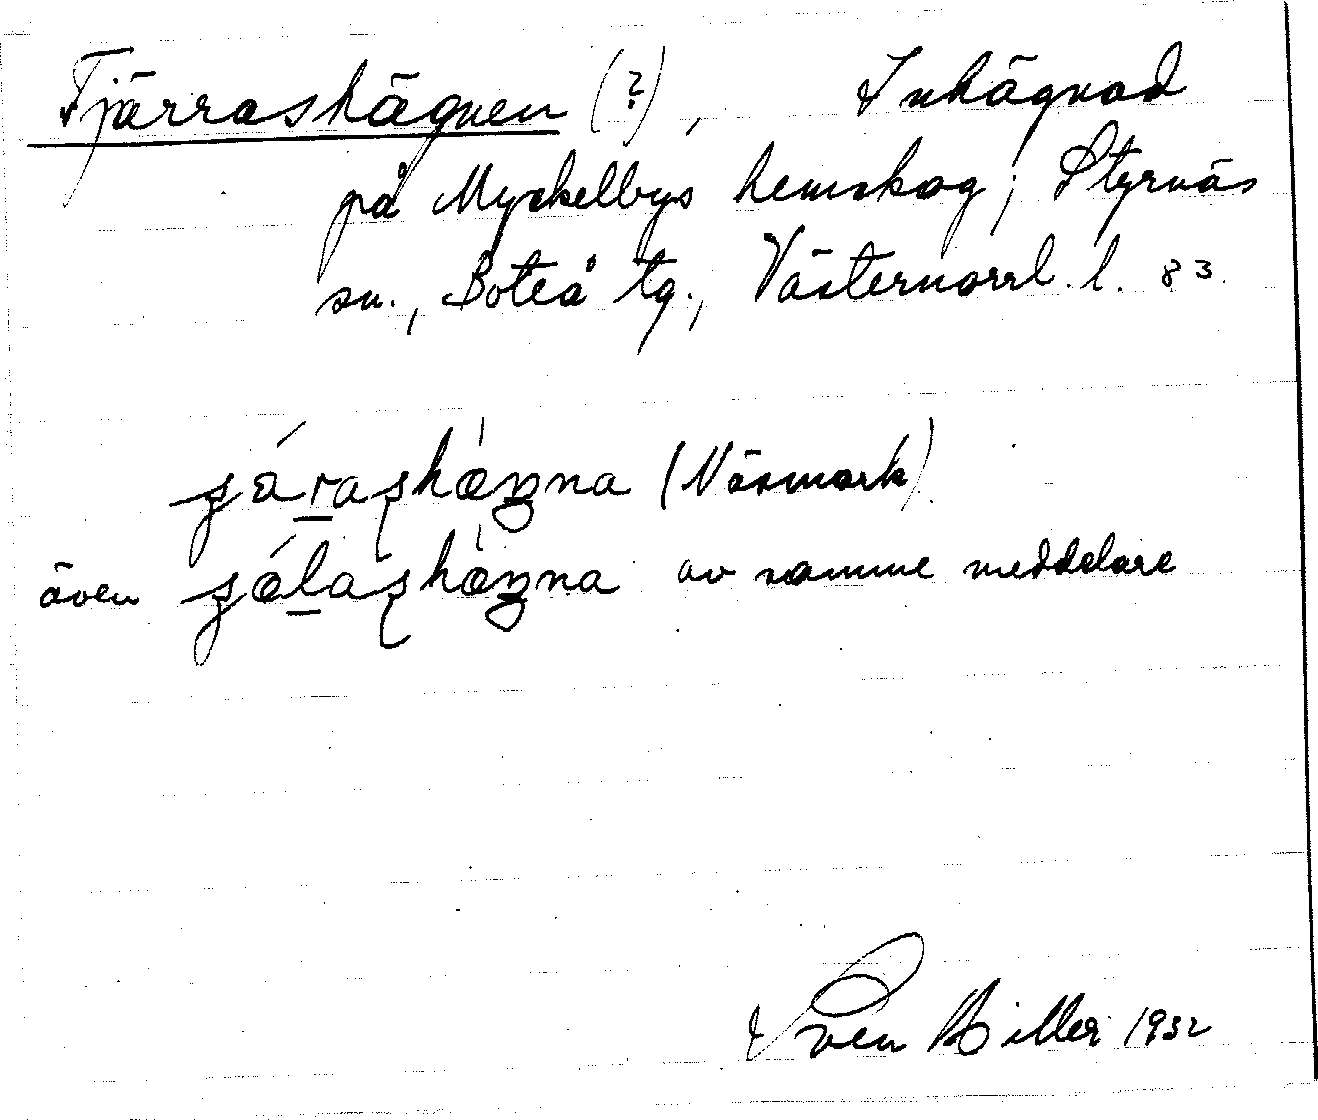 Fjärrashägnen (?), Inhägnad
på Myckelbys hemskog; Styrnäs
sn., Boteå tg., Västernorrl. l. 83.
(Näsmark)
även av samme meddelare
Sven Hiller 1932